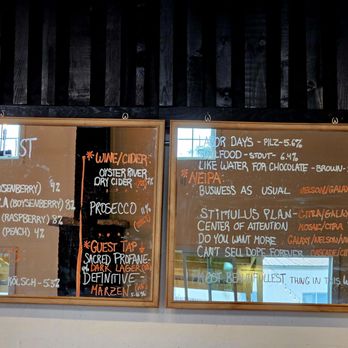 LIST
(BOYSENBERRY) 4%
(BOYSENBERRY) 3%
(RASPBERRY) 8%
(PEACH) 4%
KÖLSCH - 5.3%
*WINE/CIDER:
OYSTER RIVER
DRY CIDER
PROSECCO
*GUEST TAP
SACRED PROFANE-
DARK LAGER
DEFINITIVE-
MÄRZEN
LABOR DAYS - PILZ-5.6%
SOULFOOD - STOUT - 6.4%
LIKE WATER FOR CHOCOLATE - BROWN-
*NEIPA:
BUSINESS AS USUAL NELSON/GALAXY
STIMULUS PLAN - CITRA/GALAXY
CENTER OF ATTENTION MOSAIC/CITRA
DO YOU WANT MORE GALAXY/NELSON/
CAN'T SELL DOPE FOREVER
MOST BEAUTIFULLEST THING IN THIS